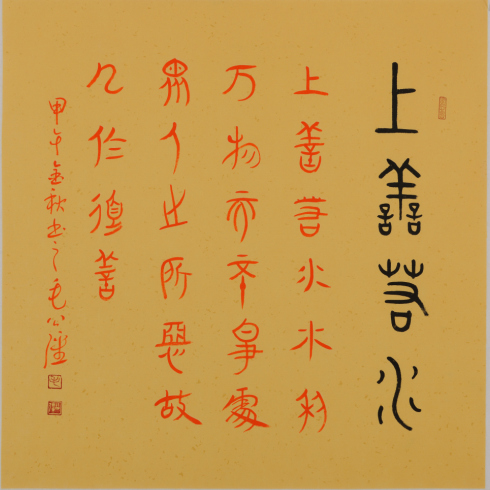 上善若水
上善若水水利
万物而不争處
眾人之所惡故
几於道善
甲午金秋书之毛公